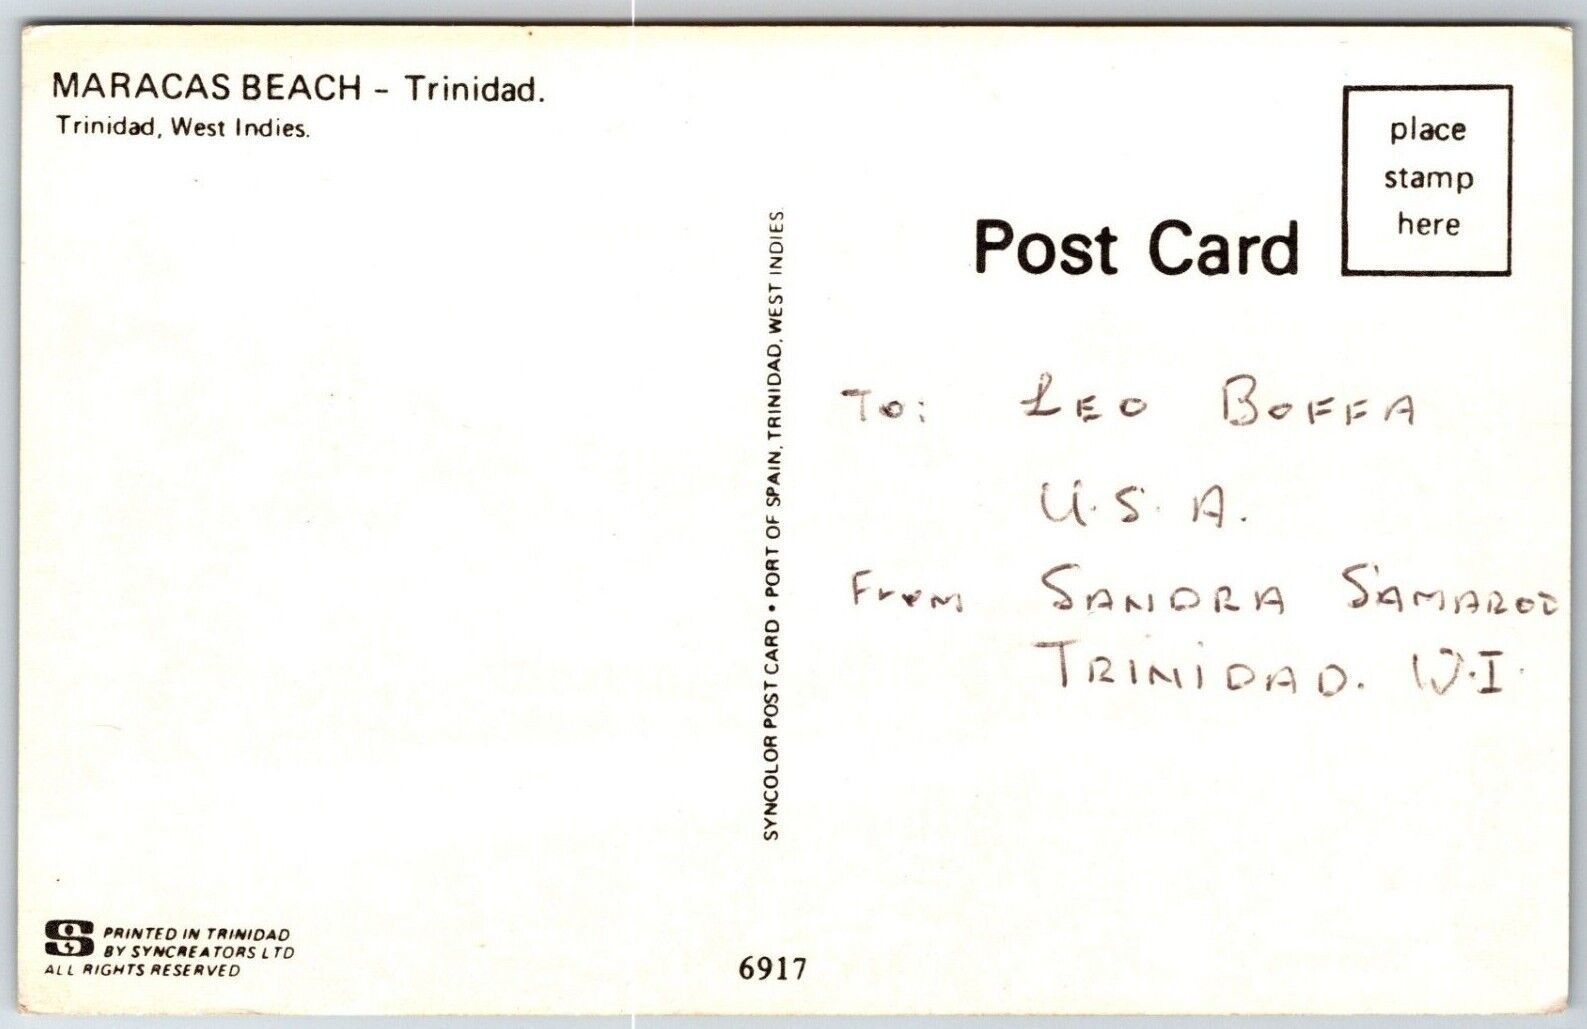 MARACAS BEACH - Trinidad.
Trinidad, West Indies.
place
stamp
here
Post Card
SYNCOLOR POST CARD • PORT OF SPAIN, TRINIDAD, WEST INDIES.
To: LEO BOFFA
U.S.A.
From SANDRA SAMAROO
TRINIDAD. W.I.
PRINTED IN TRINIDAD
BY SYNCREATORS LTD
ALL RIGHTS RESERVED
6917